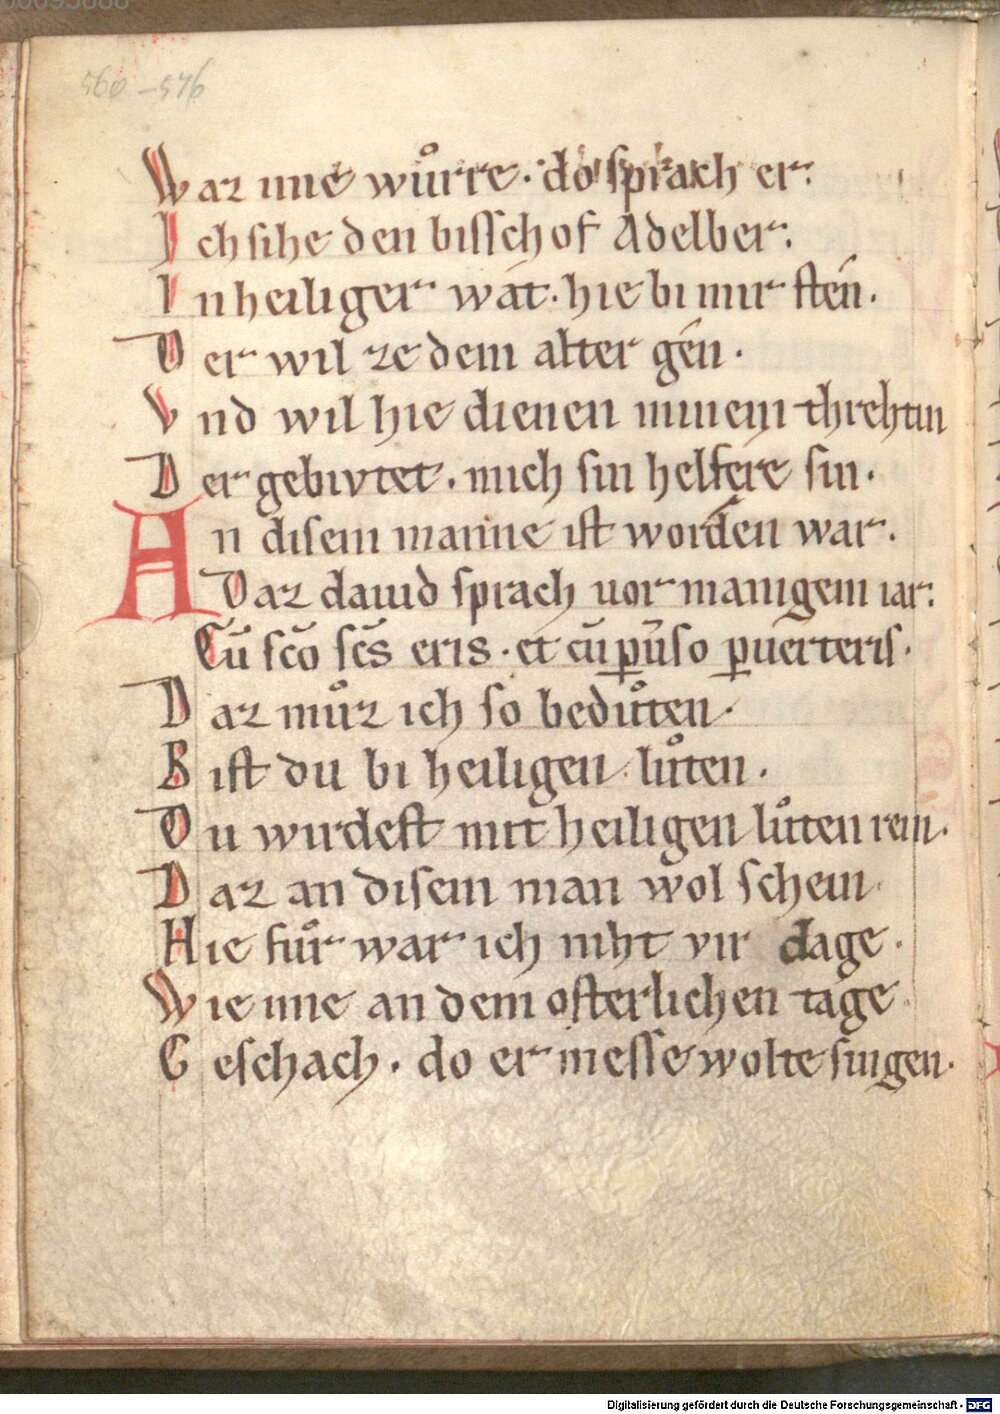 560 – 576
Waz ime wuͦrre · do sprach er:
Ich sihe den bisschof Adelber:
In heiliger wât · hie bi mir stén ·
Der wil ze dem alter gén ·
Vnd wil hie dienen minem threhtin
Der gebivtet · mich sin helfere sin ·
An disem manne ist worden war ·
Daz dauid sprach uor manigem iar:
Cū sc̄o sc̄s eris · et cū ꝑūso ꝑuerteris ·
Daz muͦz ich so beduͦten ·
Bist du bi heiligen luͦten ·
Du wirdest mit heiligen luͦten rein ·
Daz an disem man wol schein ·
Hie fuͦr war ich niht vir dage ·
Wie ime an dem osterlichen tage
Geschach · do er messe wolte singen ·
Digitalisierung gefördert durch die Deutsche Forschungsgemeinschaft - DFG